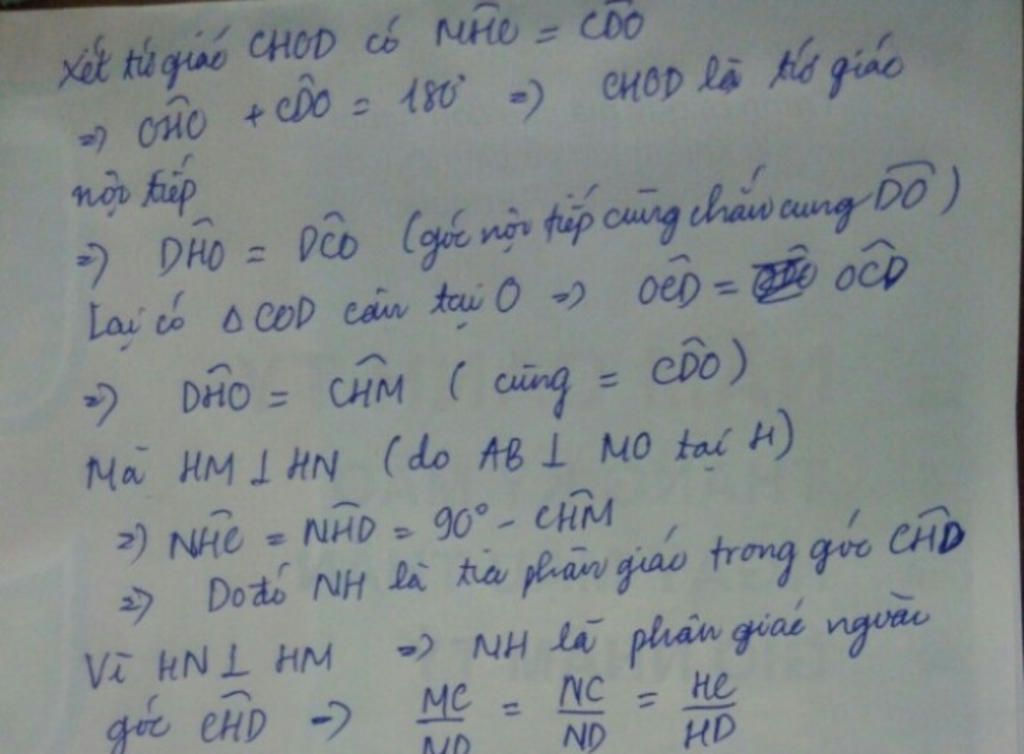 Xét tứ giác CHOD có \widehat{MHC} = \widehat{CDO}
=> \widehat{CHO} + \widehat{CDO} = 180° => CHOD là tứ giác
nội tiếp
=> \widehat{DHO} = \widehat{DCO} (góc nội tiếp cùng chắn cung \widehat{DO})
Lại có Δ COD cân tại O => \widehat{OCD} = \widehat{OCD}
=> \widehat{DHO} = \widehat{CHM} ( cùng = \widehat{CDO} )
Mà HM ⊥ HN (do AB ⊥ MO tại H)
=> \widehat{NHC} = \widehat{NHD} = 90° - \widehat{CHM}
=> Do đó NH là tia phân giác trong góc \widehat{CHD}
Vì HN ⊥ HM => NH là phân giác ngoài
góc \widehat{CHD} -> \frac{MC}{MD} = \frac{NC}{ND} = \frac{HC}{HD}